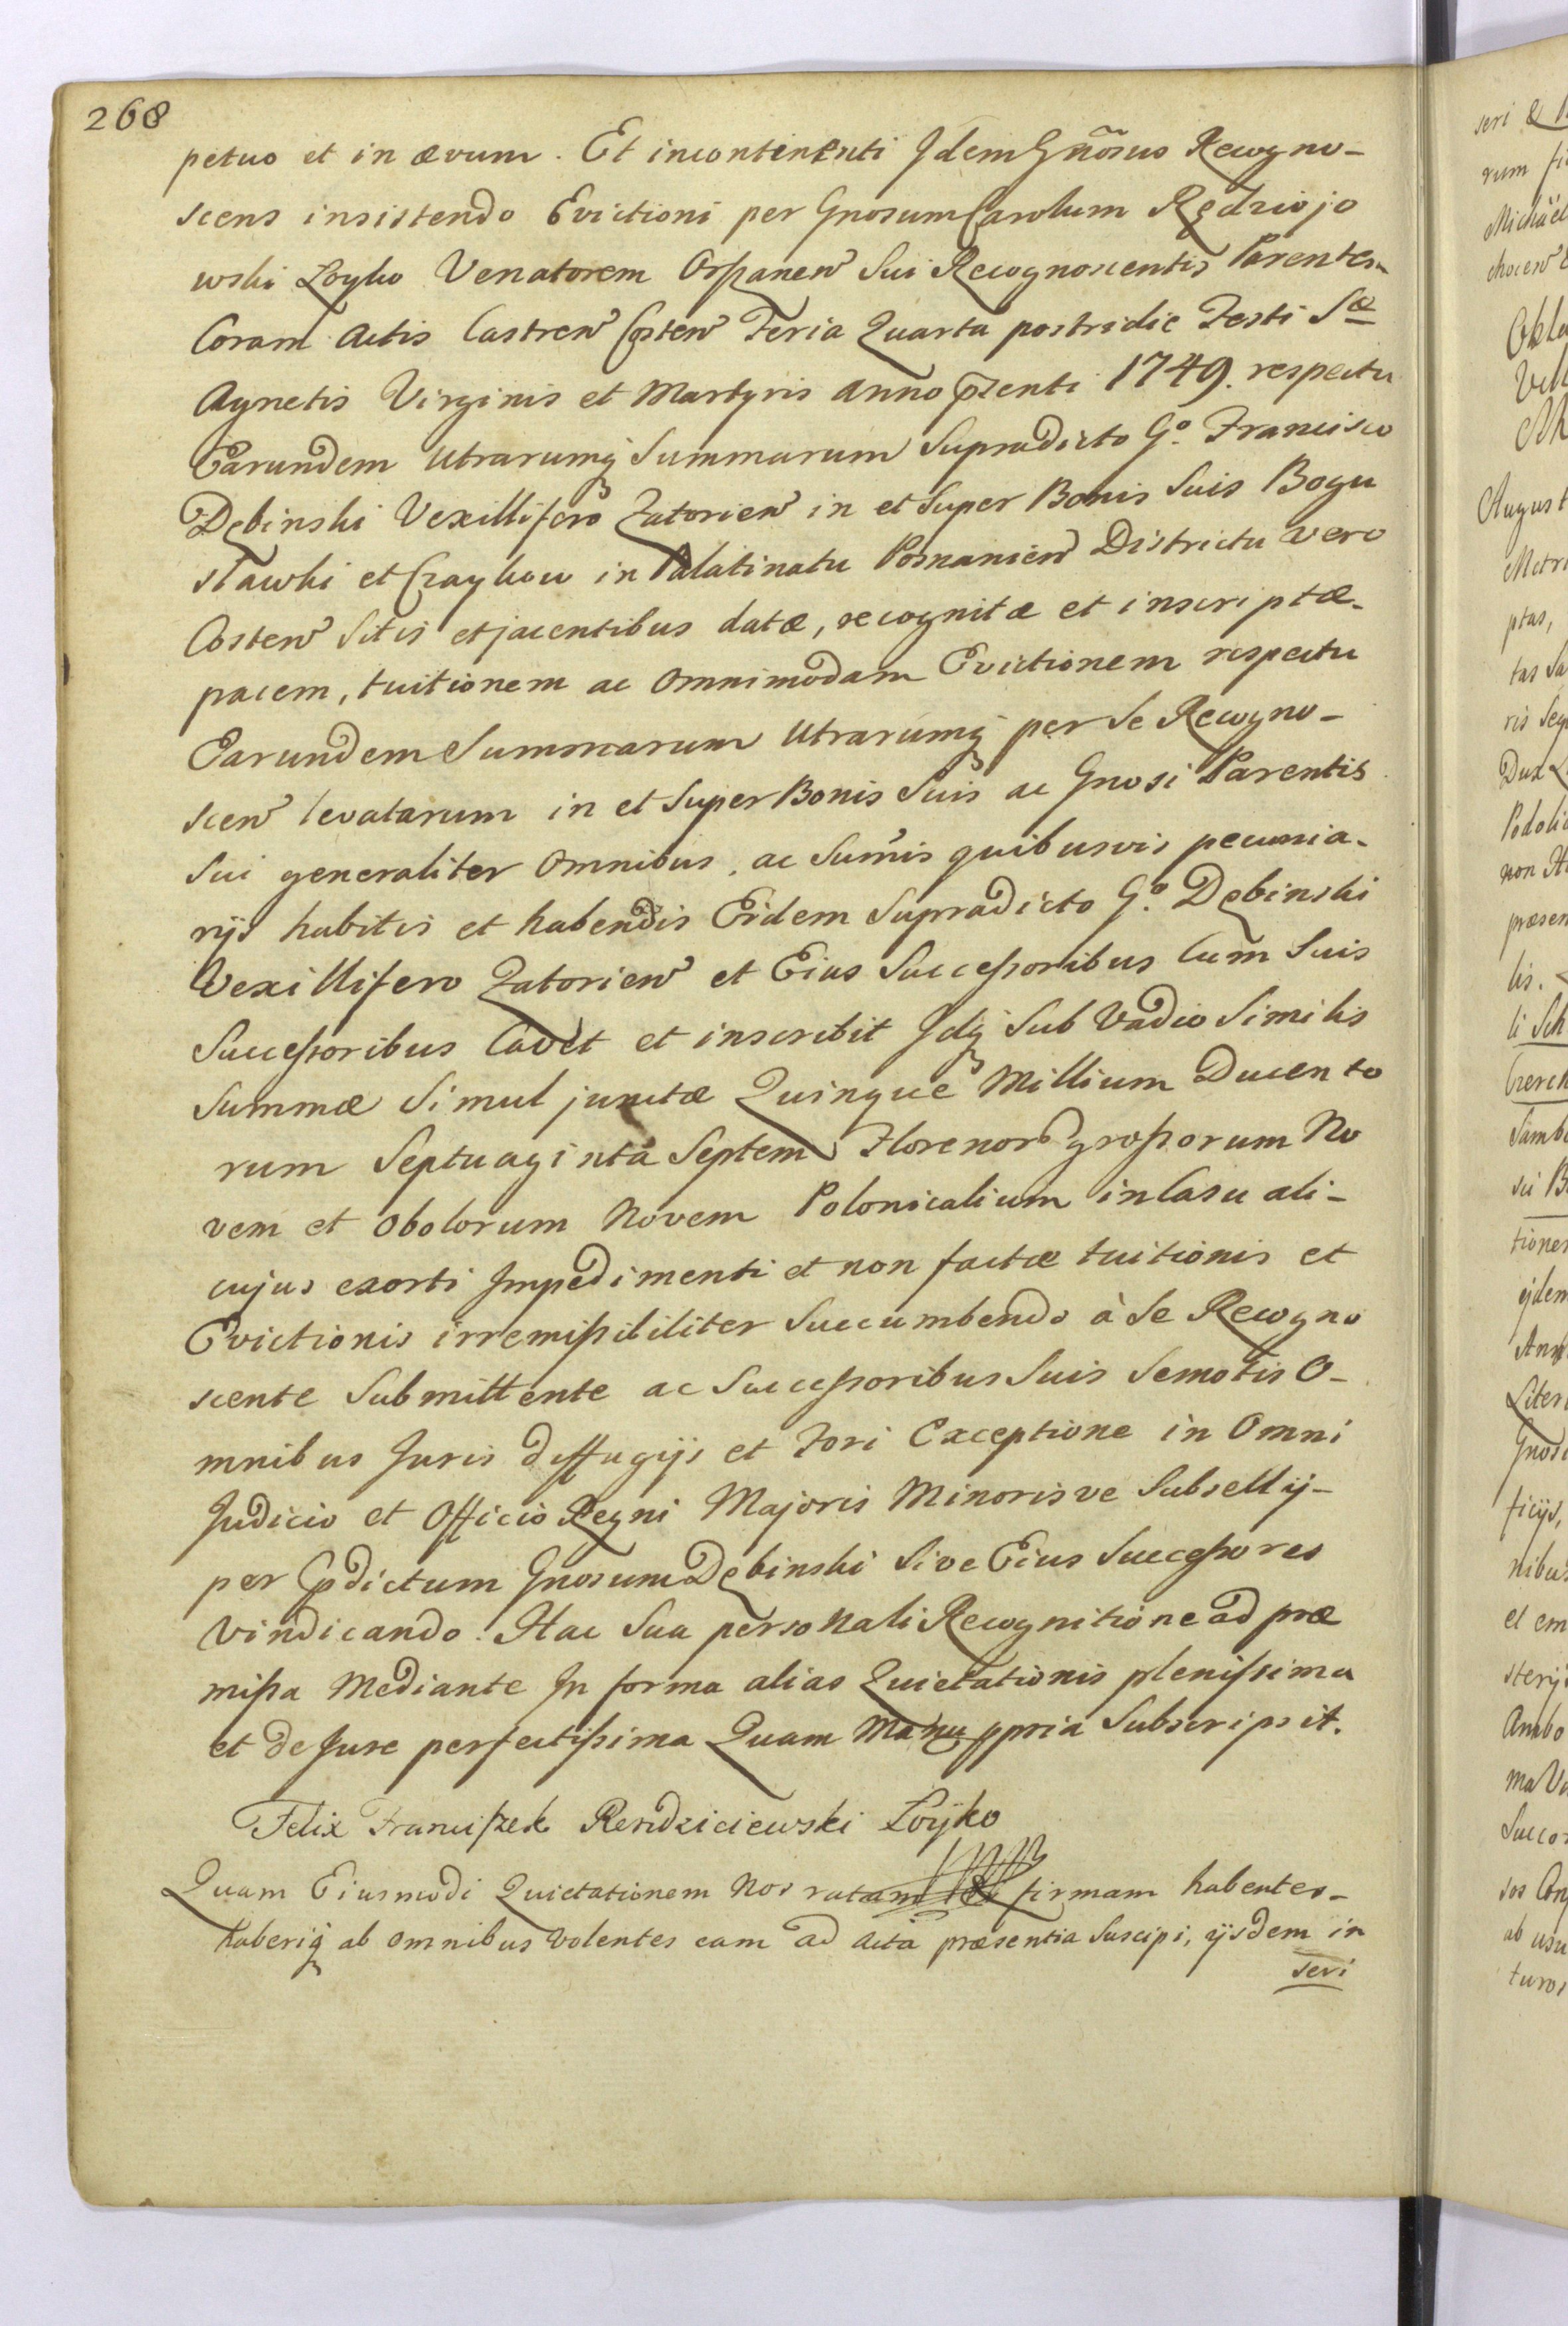 268
petuo et in ævum. Et incontinenti Idem Gñosus Recogno-
scens insistendo Evictioni per Gnosum Carolum Rędziojo
wski Łoyko Venatorem Oszanen Sui Recognoscentis Parentem
Coram Actis Castren Costen Feria Quarta postridie Festi Sæ
Agnetis Virginis et Martyris Anno pzenti 1749. respectu
Earundem Utrarumq Summarum Supradicto Go. Francisco
Dębinski Vexillifero Zatorien in et Super Bonis Suis Bogu
sławki et Czaykow in Palatinatu Posnanien Districtu vero
Costen Sitis et jacentibus datæ, recognitæ et inscriptæ-
pacem, tuitionem ac Omnimodam Evictionem respectu
Earundem Summarum Utrarumq per Se Recogno-
scen levatarum in et Super Bonis Suis ac Gnosi Parentis
Sui generaliter Omnibus, ac Sumis quibusvis pecunia-
rijs habitis et habendis Eidem Supradicto Go. Dębinski
Vexillifero Zatorien et Eius Successoribus Cum Suis
Successoribus Cavet et inscribit Idq Sub Vadio Similis
Summæ Simul junctæ Quinque Millium Ducento
rum Septuaginta Septem Florenor grossorum No
vem et Obolorum Novem Polonicalium in Casu ali-
cujus exorti Impedimenti et non factæ tuitionis et
Evictionis irremissibiliter Succumbendo à Se Recogno
scente Submittente ac Successoribus Suis Semotis O-
mnibus Juris diffugijs et Fori Exceptione in Omni
Judicio et Officio Regni Majoris Minorisve Subsellij-
per pdictum Gnosum Dębinski Sive Eius Successores
Vindicando. Hac Sua personali Recognitione ad præ
missa Mediante In forma alias Quietationis plenissima
et de Jure perfectissima Quam Manu ppria Subscripsit.
Felix Franciszek Rendziciewski Łoyko
Quam Eiusmodi Quietationem Nos ratam firmam habentes-
haberiq ab omnibus Volentes eam ad Acta præsentia Suscipi, ijsdem in
seri